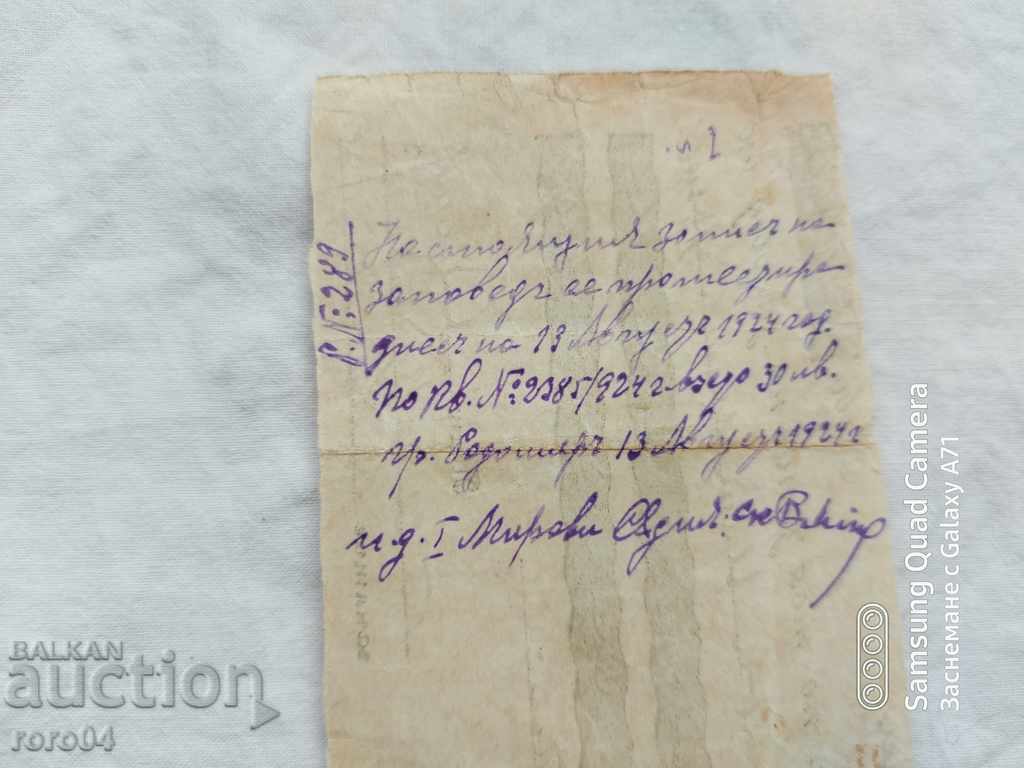 Р. №: 289
Настоящия записъ на
заповедъ се протестира
днесъ на 13 Августъ 1924 год.
По Кв. №: 2385/924 г. взето 30 лв.
гр. Радомиръ 13 Августъ 1924 г
и. д. I Мирови Съдия:
BALKAN
auction
roro04
Samsung Quad Camera
Заснемане с Galaxy A71